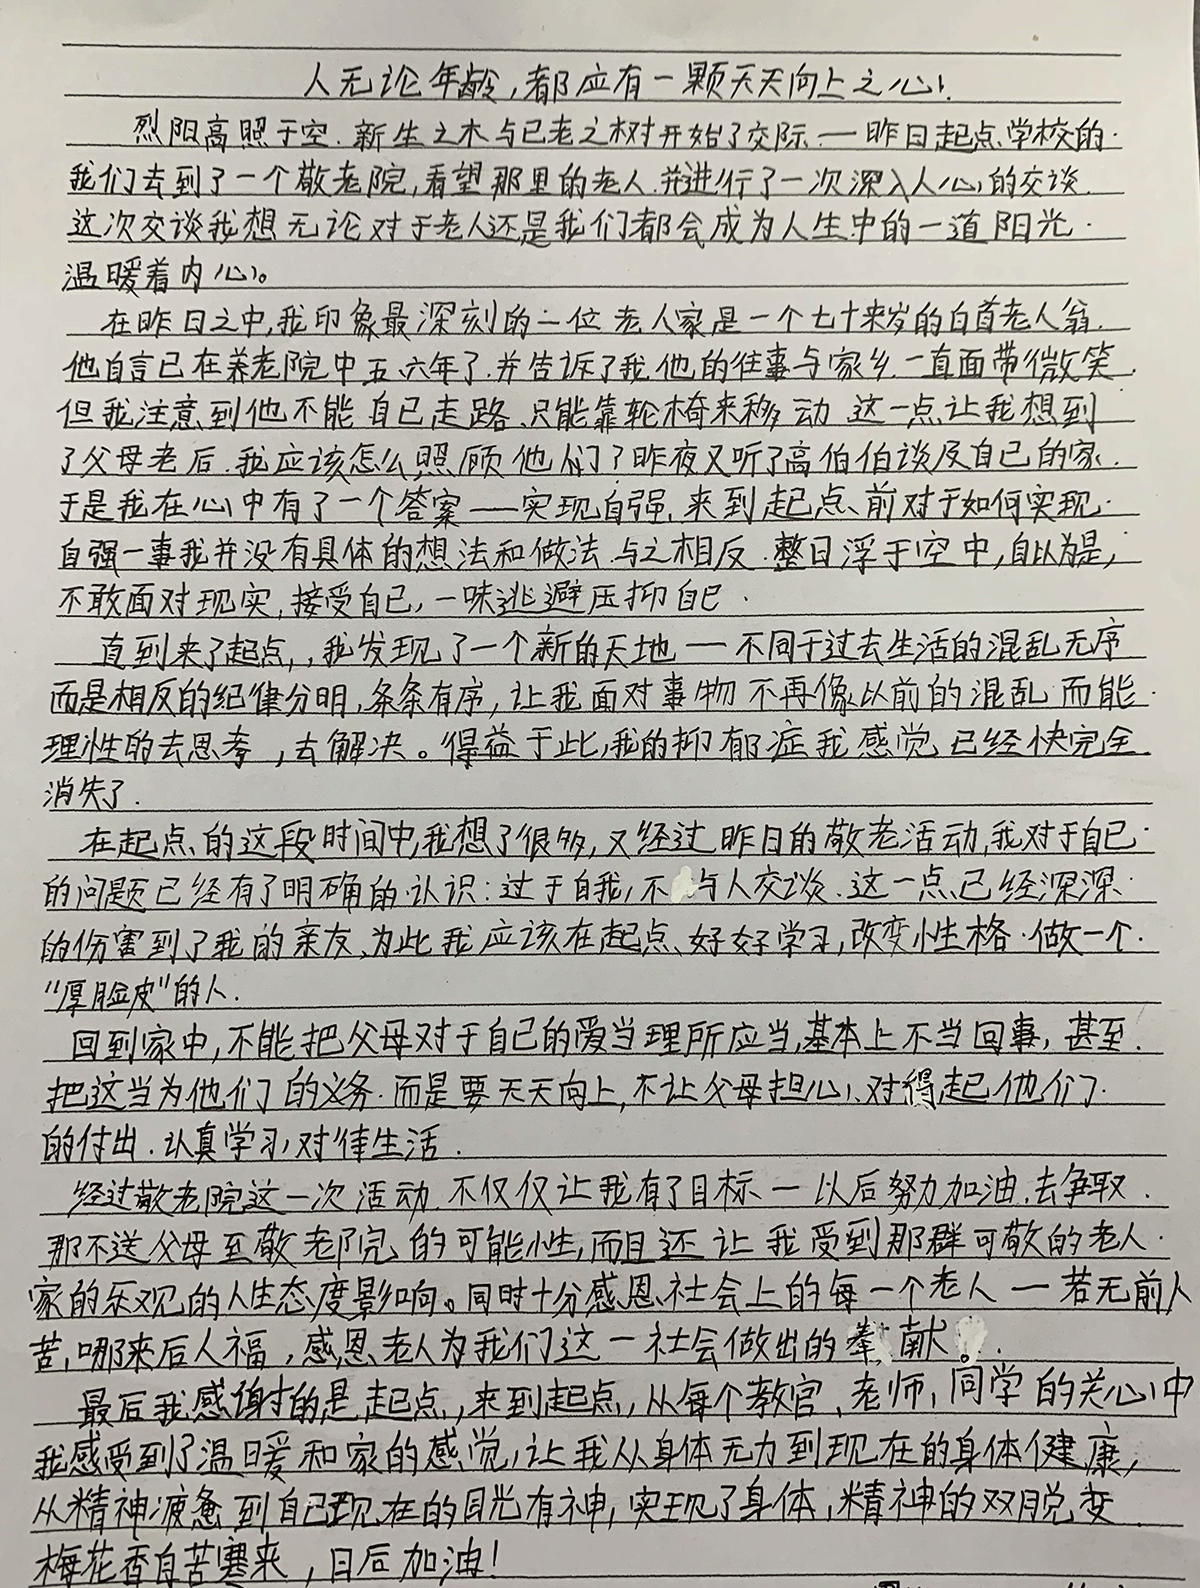 人无论年龄，都应有一颗天天向上之心！
烈阳高照于空.新生之木与已老之树开始了交际.一昨日起点学校的.
我们去到了一个敬老院，看望那里的老人.并进行了一次深入人心的交谈.
这次交谈我想无论对于老人还是我们都会成为人生中的一道阳光.
温暖着内心。
在昨日之中，我印象最深刻的一位老人家是一个七十来岁的白首老人翁.
他自言已在养老院中五、六年了.并告诉了我他的往事与家乡.一直面带微笑.
但我注意到他不能自己走路、只能靠轮椅来移动 这一点让我想到
了父母老后.我应该怎么照顾他们？昨夜又听了高伯伯谈及自己的家.
于是我在心中有了一个答案——实现自强.来到起点前对于如何实现.
自强一事我并没有具体的想法和做法.与之相反.整日浮于空中，自以为是，
不敢面对现实，接受自己，一味逃避压抑自己.
直到来了起点，，我发现了一个新的天地一不同于过去生活的混乱无序
而是相反的纪律分明，条条有序，让我面对事物不再像以前的混乱而能.
理性的去思考，去解决。得益于此，我的抑郁症我感觉已经快完全
消失了.
在起点的这段时间中，我想了很多，又经过昨日的敬老活动，我对于自己.
的问题已经有了明确的认识：过于自我，不与人交谈.这一点已经深深.
的伤害到了我的亲友、为此我应该在起点好好学习，改变性格.做一个.
“厚脸皮”的人.
回到家中，不能把父母对于自己的爱当理所应当，基本上不当回事，甚至.
把这当为他们的义务.而是要天天向上，不让父母担心、对得起他们.
的付出.认真学习，对待生活.
经过敬老院这一次活动.不仅仅让我有了目标一以后努力加油.去争取.
那不送父母至敬老院的可能性，而且还让我受到那群可敬的老人.
家的乐观的人生态度影响。同时十分感恩社会上的每一个老人一若无前人
苦，哪来后人福，感恩老人为我们这一社会做出的奉献。.
最后我感谢的是起点，来到起点，从每个教官、老师，同学的关心中
我感受到了温暖和家的感觉，让我从身体无力到现在的身体健康，
从精神疲惫到自己现在的目光有神，实现了身体，精神的双脱变.
梅花香自苦寒来，日后加油！